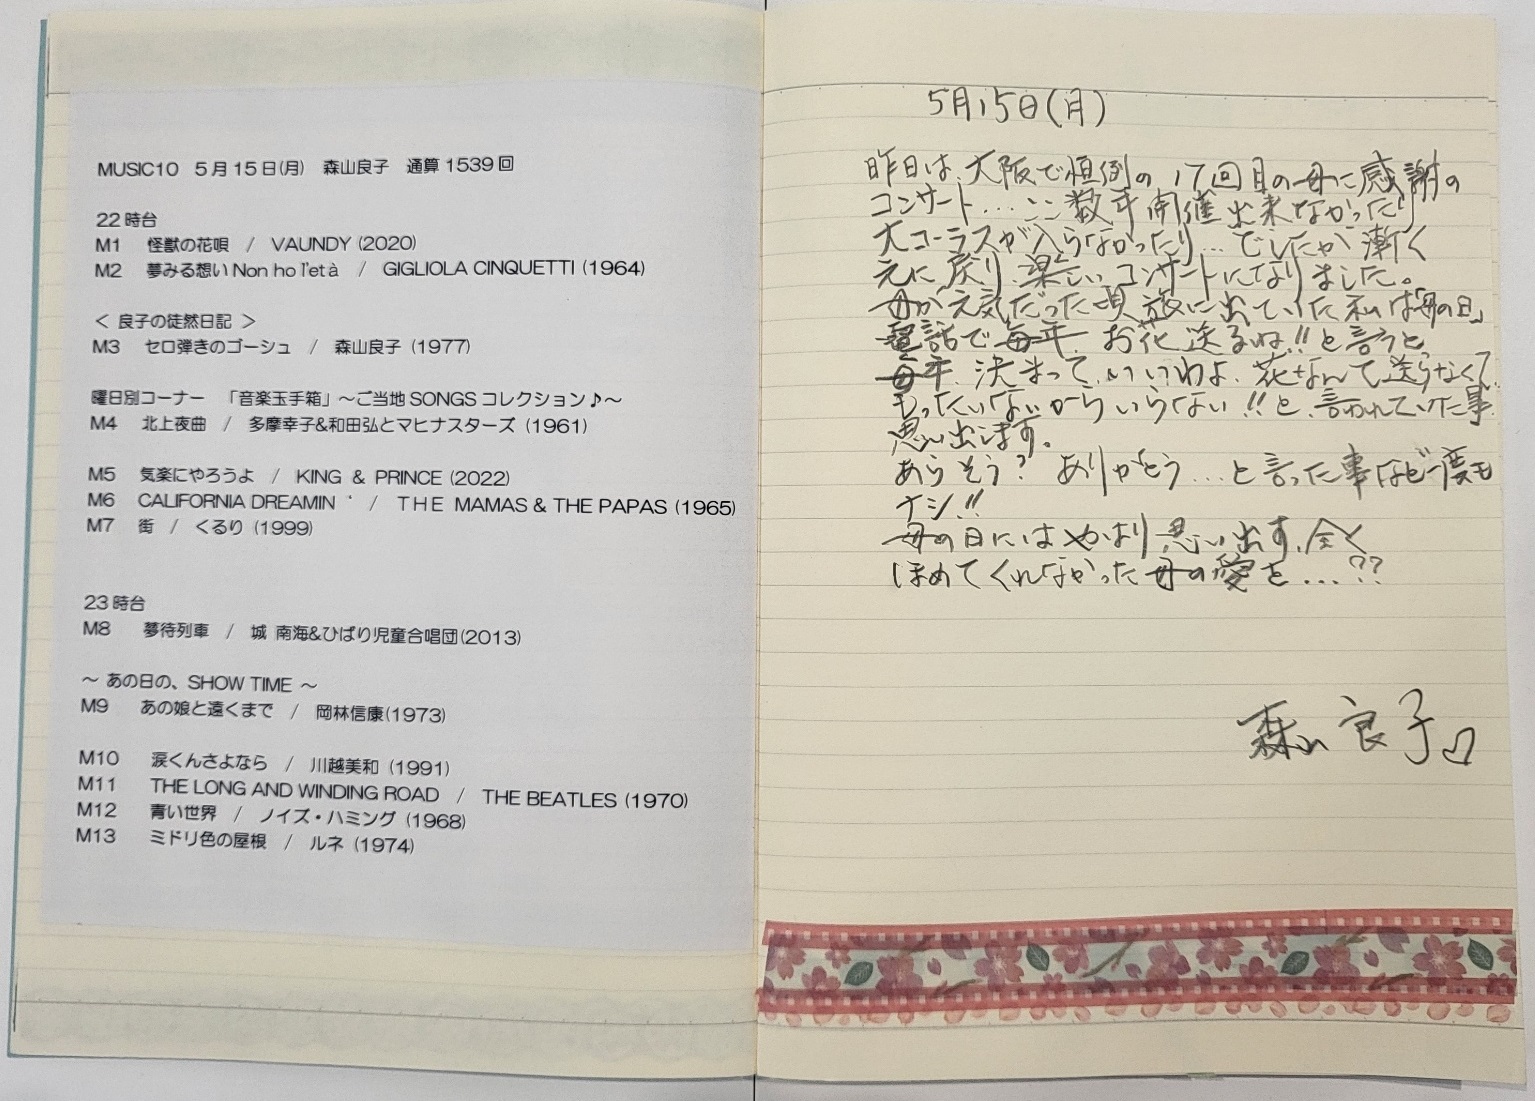 MUSIC10 5月15日(月) 森山良子 通算1539回
22時台
M1 怪獣の花唄 / VAUNDY (2020)
M2 夢みる想い Non ho l'età / GIGLIOLA CINQUETTI (1964)
< 良子の徒然日記 >
M3 セロ弾きのゴーシュ / 森山良子 (1977)
曜日別コーナー 「音楽玉手箱」~ご当地SONGSコレクション♪~
M4 北上夜曲 / 多摩幸子&和田弘とマヒナスターズ (1961)
M5 気楽にやろうよ / KING & PRINCE (2022)
M6 CALIFORNIA DREAMIN ‘ / THE MAMAS & THE PAPAS (1965)
M7 街 / くるり (1999)
23時台
M8 夢待列車 / 城 南海&ひばり児童合唱団(2013)
~ あの日の、SHOW TIME ~
M9 あの娘と遠くまで / 岡林信康(1973)
M10 涙くんさよなら / 川越美和 (1991)
M11 THE LONG AND WINDING ROAD / THE BEATLES (1970)
M12 青い世界 / ノイズ・ハミング (1968)
M13 ミドリ色の屋根 / ルネ (1974)
5月15日(月)
昨日は、大阪で恒例の17回目の母に感謝の
コンサート...ここ数年開催出来なかったり
大コーラスが入らなかったり...でしたが漸く
元に戻り、楽しいコンサートになりました。
母が元気だった頃、旅に出ていた私は「母の日」
電話で毎年、お花送るね!!と言うと
毎年、決まって、いいわよ、花なんて送らなくて、
もったいないからいらない!!と、言われていた事
思い出します。
あらそう?ありがとう...と言った事など一度も
ナシ!!
母の日にはやはり思い出す、全く
ほめてくれなかった母の愛を...??
森山良子♡